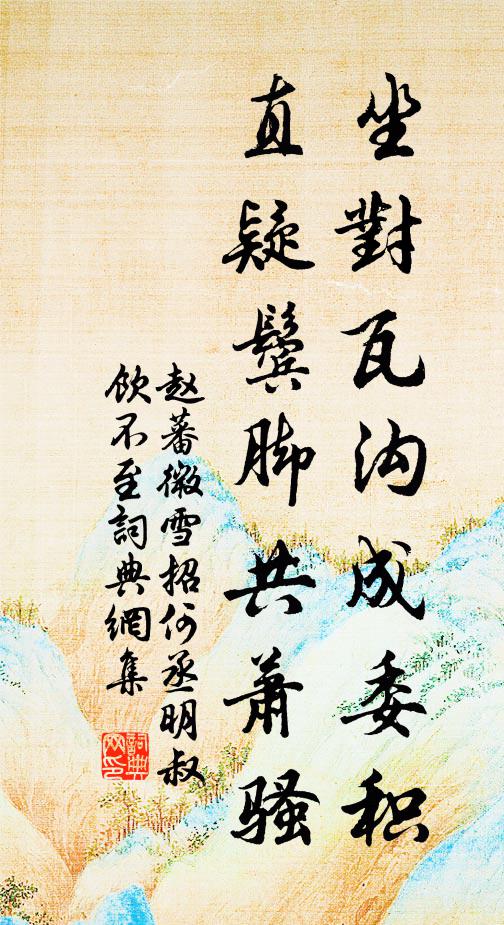 坐對瓦沟成委积
直疑鬓脚共萧骚
赵蕃微雪招何丞明叔
饮不至詞典網集
詞典
网印